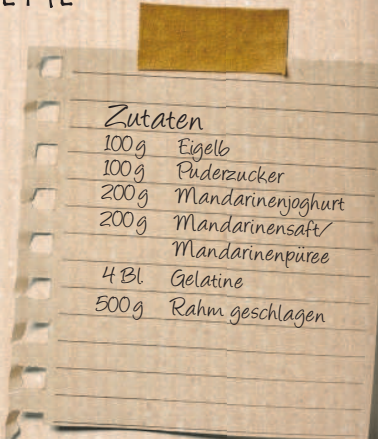 Zutaten
100 g Eigelb
100 g Puderzucker
200 g Mandarinenjoghurt
200 g Mandarinensaft/
Mandarinenpüree
4 Bl. Gelatine
500 g Rahm geschlagen